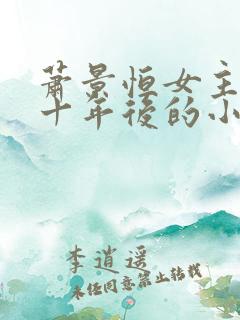 蕭景恒女主
十年後的小
李逍遥
未经同意禁止转载